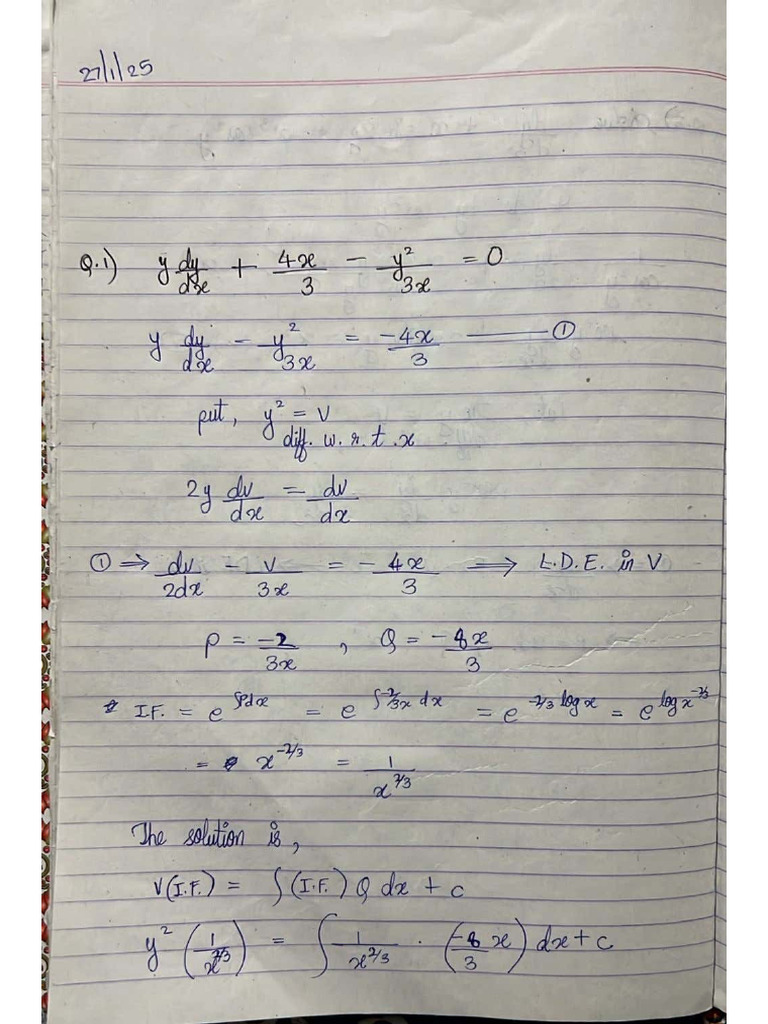 27/1/25
Q.1) y dy/dx + 4x/3 - y²/3x = 0
y dy/dx - y²/3x = -4x/3 —— ①
put, y² = v
diff. w.r.t.x
2y dv/dx = dv/dx
① ⇒ dv/2dx - v/3x = -4x/3 ⟹ L.D.E. in V
P = -2/3x , Q = -8x/3
I.F. = e^∫Pdx = e^∫-2/3x dx = e^-2/3 log x = e^log x^-2/3
= x^-2/3 = 1/x^2/3
The solution is,
v(I.F.) = ∫(I.F.) Q dx + c
y² (1/x^2/3) = ∫ 1/x^2/3 · (-8/3 x) dx + c